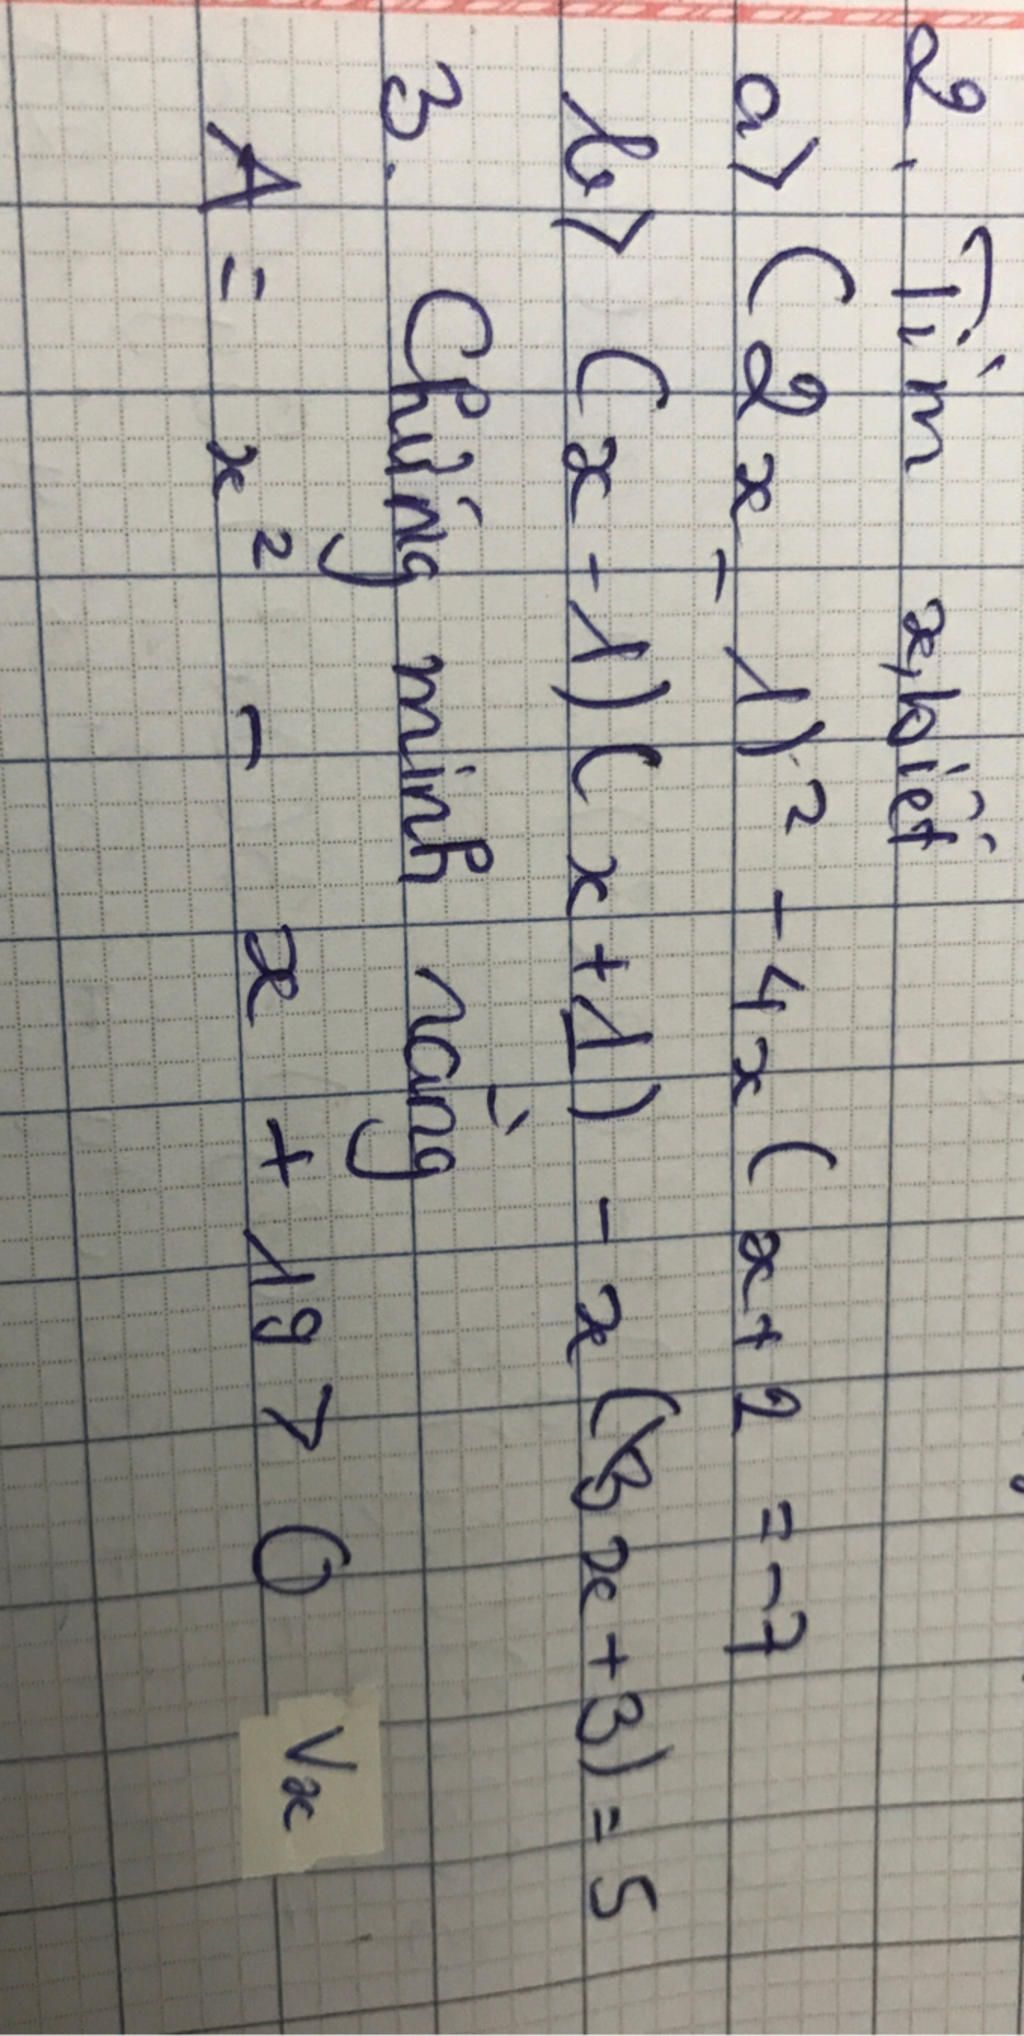 2. Tìm x, biết
a) (2x - 1)² - 4x (x + 2 = -7
b) (x - 1)(x + 1) - x (3x + 3) = 5
3. Chứng minh rằng
A = x² - x + 19 > 0 Vx